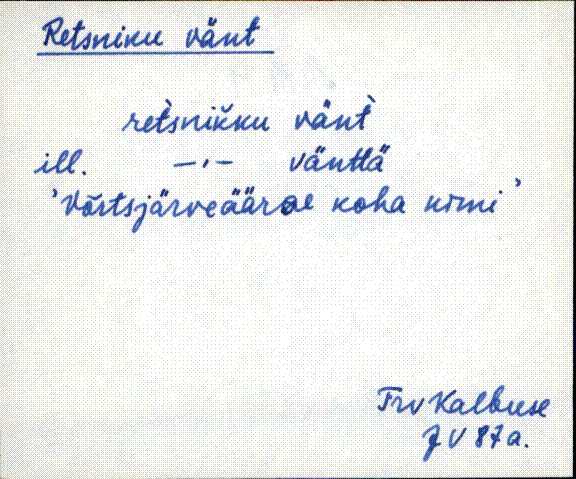 Retsniku vänt
retsnikku vänt̀
ill. —„— vänttä
'Võrtsjärveäärse koha nimi'
Trv Kalbuse
J V 87a.